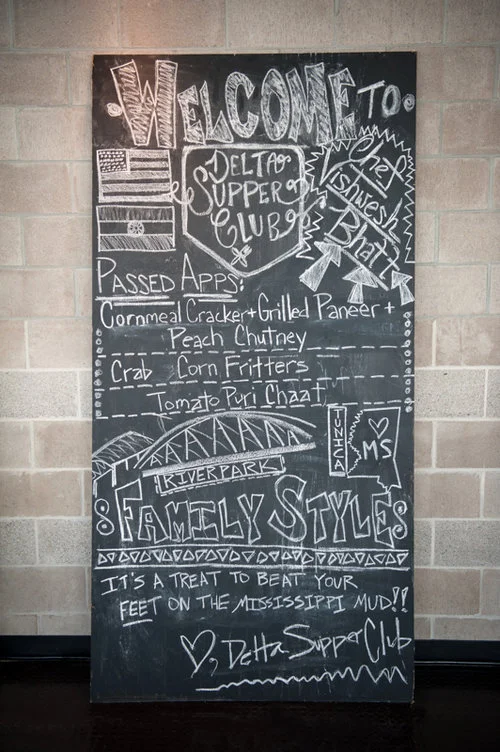 WELCOME TO
DELTA
SUPPER
CLUB
Chef
Vishwesh
Bhatt
PASSED APPS:
Cornmeal Cracker + Grilled Paneer +
Peach Chutney
Crab Corn Fritters
Tomato Puri Chaat
RIVERPARK
TUNICA
MS
FAMILY STYLE
IT'S A TREAT TO BEAT YOUR
FEET ON THE MISSISSIPPI MUD!!
Delta Supper Club